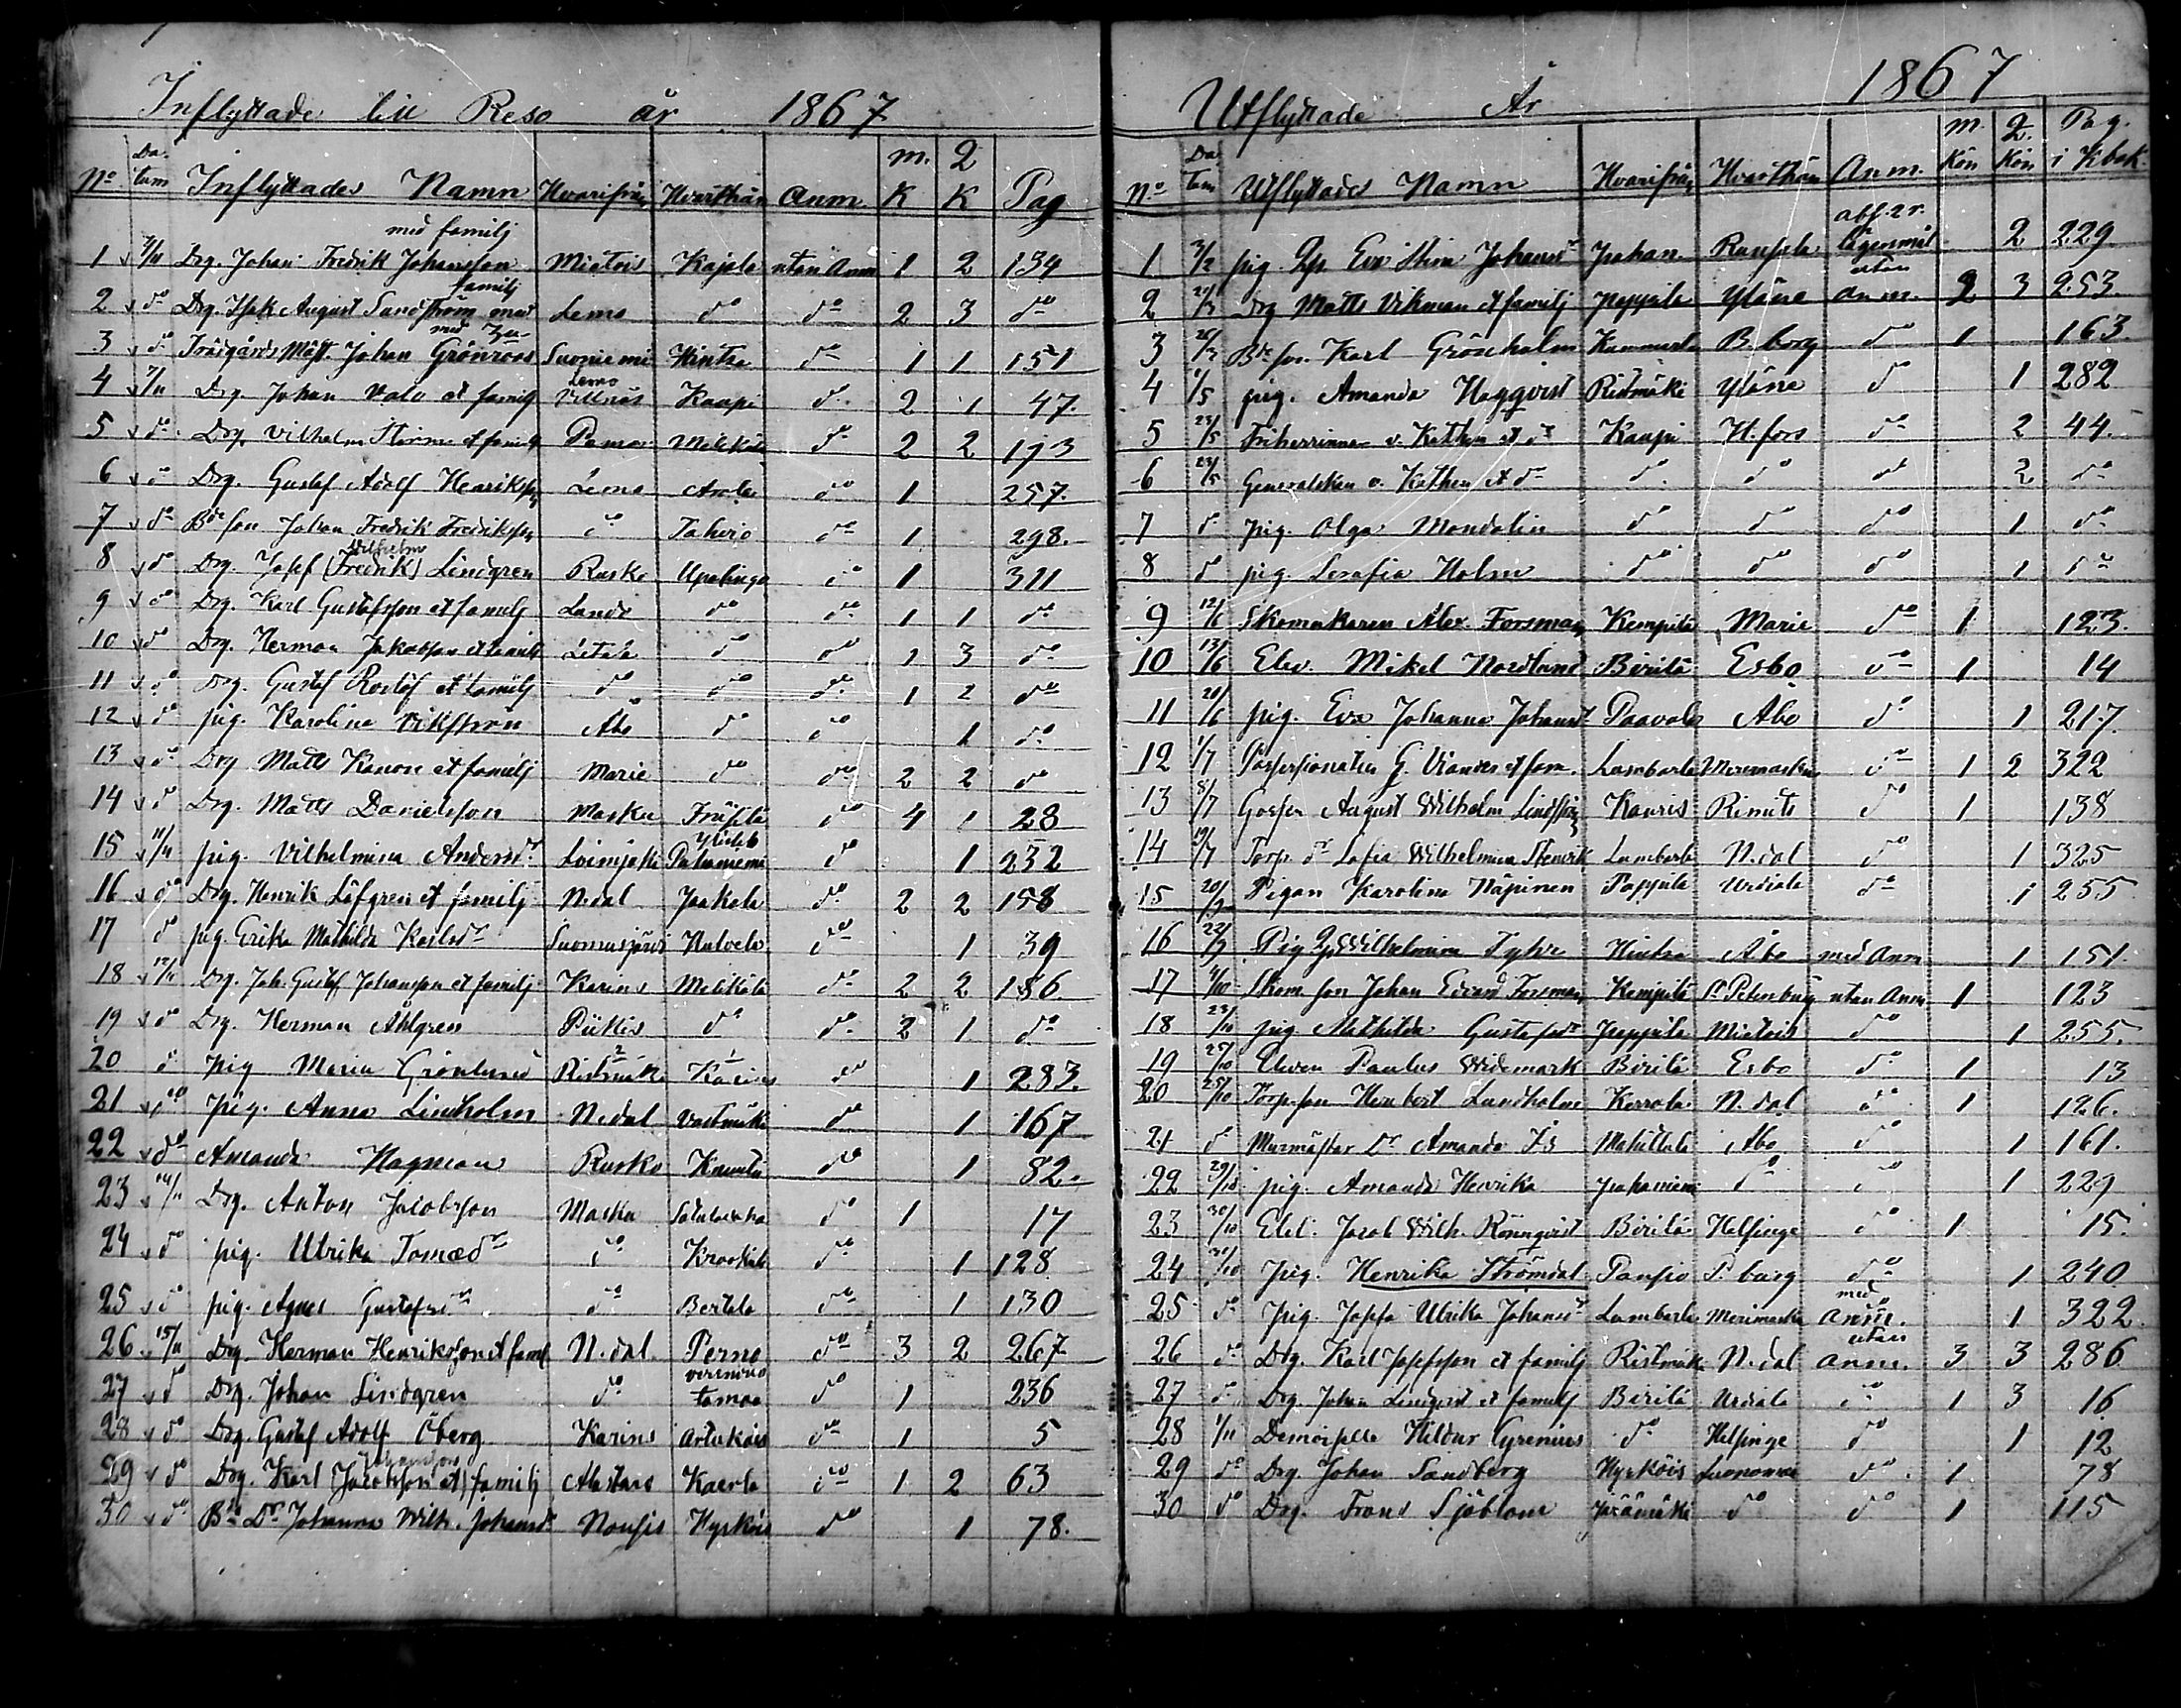 Inflyttade till Reso år 1867
No Datum Inflyttades Namn Hvarifrån Hvarthän Anm. m. K Q K Pag
med familj
1 Drg. Johan Fredrik Johansson Mietois Kajala utan Anm 1 2 134
familj
2 do Drg. Isak August Sandström med Lemo do do 2 3 do
3 do Trädgårds Mäst. Johan Grönroos Suoniemi Hintsa do 1 1 151
Lemo
4 7/11 Drg. Johan Valo et familj Villnäs Kaapi do 2 1 47.
5 do Drg. Vilhelm Storm et familj Pemar do 2 2 193
6 do Drg. Gustaf Adolf Henriksson Lemo do 1 257.
7 do Bde son Johan Fredrik Fredriksson do Taherö do 1 298.
Wilhelm
8 do Drg. Josef (Fredrik) Lindgren Rusko Upalinga do 1 311
9 do Drg. Karl Gustafsson et familj Lundo do do 1 1 do
10 do Drg. Herman Jakobsson et familj Letala do do 1 3 do
11 do Drg. Gustaf Roslöf et familj do do do 1 2 do
12 do pig. Karolina Åbo do do 1 do
13 do Drg Matts Kanon et familj Marie do do 2 2 do
14 do Drg. Matts Danielsson Masku do 4 1 28
15 11/11 pig. Vilhelmina Andersdr Loimijoki Pahaniemi do 1 232
16 do Drg. Henrik Löfgren et familj N.dal Jaakola do 2 2 158
17 do pig. Erika Mathilda Karlsdr Suomusjärvi do 1 39
18 12/11 Drg. Joh. Gustaf Johansson et familj Karins do 2 2 186
19 do Drg. Herman Ahlgren Piikis do do 2 1 do
20 do pig Maria Grönlund Ristmäki Karins do 1 283.
21 do pig. Anna Lindholm N.dal do 1 167
22 do Amanda Hagman Rusko do 1 82.
23 14/11 Drg. Anton Jacobsson Masku do 1 17
24 do pig. Ulrika Tomædr do Krookila do 1 128
25 do pig. Agnes Gustafsdr do Bertala do 1 130
26 15/11 Drg. Herman Henriksson et famil N.dal Perno do 3 2 267
27 do Drg. Johan Lindgren do do 1 236
28 do Drg. Gustaf Adolf Öberg Karins Artukais do 1 5
Johansson
29 do Drg. Karl (Jacobsson et) familj Alastaro Kaerla do 1 2 63
30 do Bde Dr Johanna Wilh. Johansdr Nousis Hyrköis do 1 78.
Utflyttade År 1867
No Datum Utflyttades Namn Hvarifrån Hvarthän Anm. m. Kön Q. Kön Pag. i Kbok
1 3/2 pig. Eva Stina Johansdr Jaehan. lägersmål 2 229
utan
2 Drg Matts Vikman et familj Pappila Yläne anm. 2 3 253.
3 Bde son. Karl Grönholm B.borg do 1 163.
4 1/5 pig. Amanda Haggvist Ristmäki Yläne do 1 282
5 23/5 Friherrinnan v. Kothen et do Kaapi H.fors do 2 44.
6 23/5 Generalskan v. Kothen et do do do do 2 do
7 do pig. Olga Mandalin do do do 1 do
8 do pig. Serafia Holm do do do 1 do
9 12/6 Skomakaren Alex. Forsman Kempilä Marie do 1 123.
10 13/6 Elev. Mikel Nordlund Birilä Esbo do 1 14
11 20/6 pig. Eva Johanna Johansdr Paavola Åbo do 1 217.
12 1/7 Possessionaten G. et fam. Lambarla Merimasku do 1 2 322
13 8/7 August Wilhelm Kauris Rimito do 1 138
14 19/7 Torp. dr Sofia Wilhelmina Lambarla N.dal do 1 325
15 Pigan Karolina Näpinen Pappila Urdiala do 1 255
16 Pig Wilhelmina Hintsa Åbo med Anm 1 151.
17 4/10 Skom. son Johan Edvard Forsman Kempilä St Petersburg utan Anm 1 123
18 23/10 pig Mathilda Gustafsdr Pappila Mietois do 1 255.
19 25/10 Eleven Paulus Widemark Birilä Esbo do 1 13
20 25/10 Torp. son Herbert Lundholm Kerrola N.dal do 1 126.
21 do Murmästar Dr Amanda Is Åbo do 1 161.
22 29/10 pig. Amanda Henrika Pahaniemi do do 1 229
23 30/10 Elel. Jacob Wilh. Rönnqvist Birilä Helsinge do 1 15.
24 31/10 pig. Henrika Strömdal Pansio P.burg do 1 240
med
25 do pig. Josefa Ulrika Johansdr Lambarla Merimasku Anm. 1 322.
utan
26 do Drg. Karl Josefsson et familj Ristmäki N.dal anm. 3 3 286
27 do Drg. Johan Lindqvist et familj Birilä Urdiala do 1 3 16
28 1/11 Demoiselle Hildur Cyrenius do Helsinge do 1 12
29 do Drg. Johan Sandberg Hyrköis do 1 78
30 do Drg. Frans Sjöblom do do 1 115